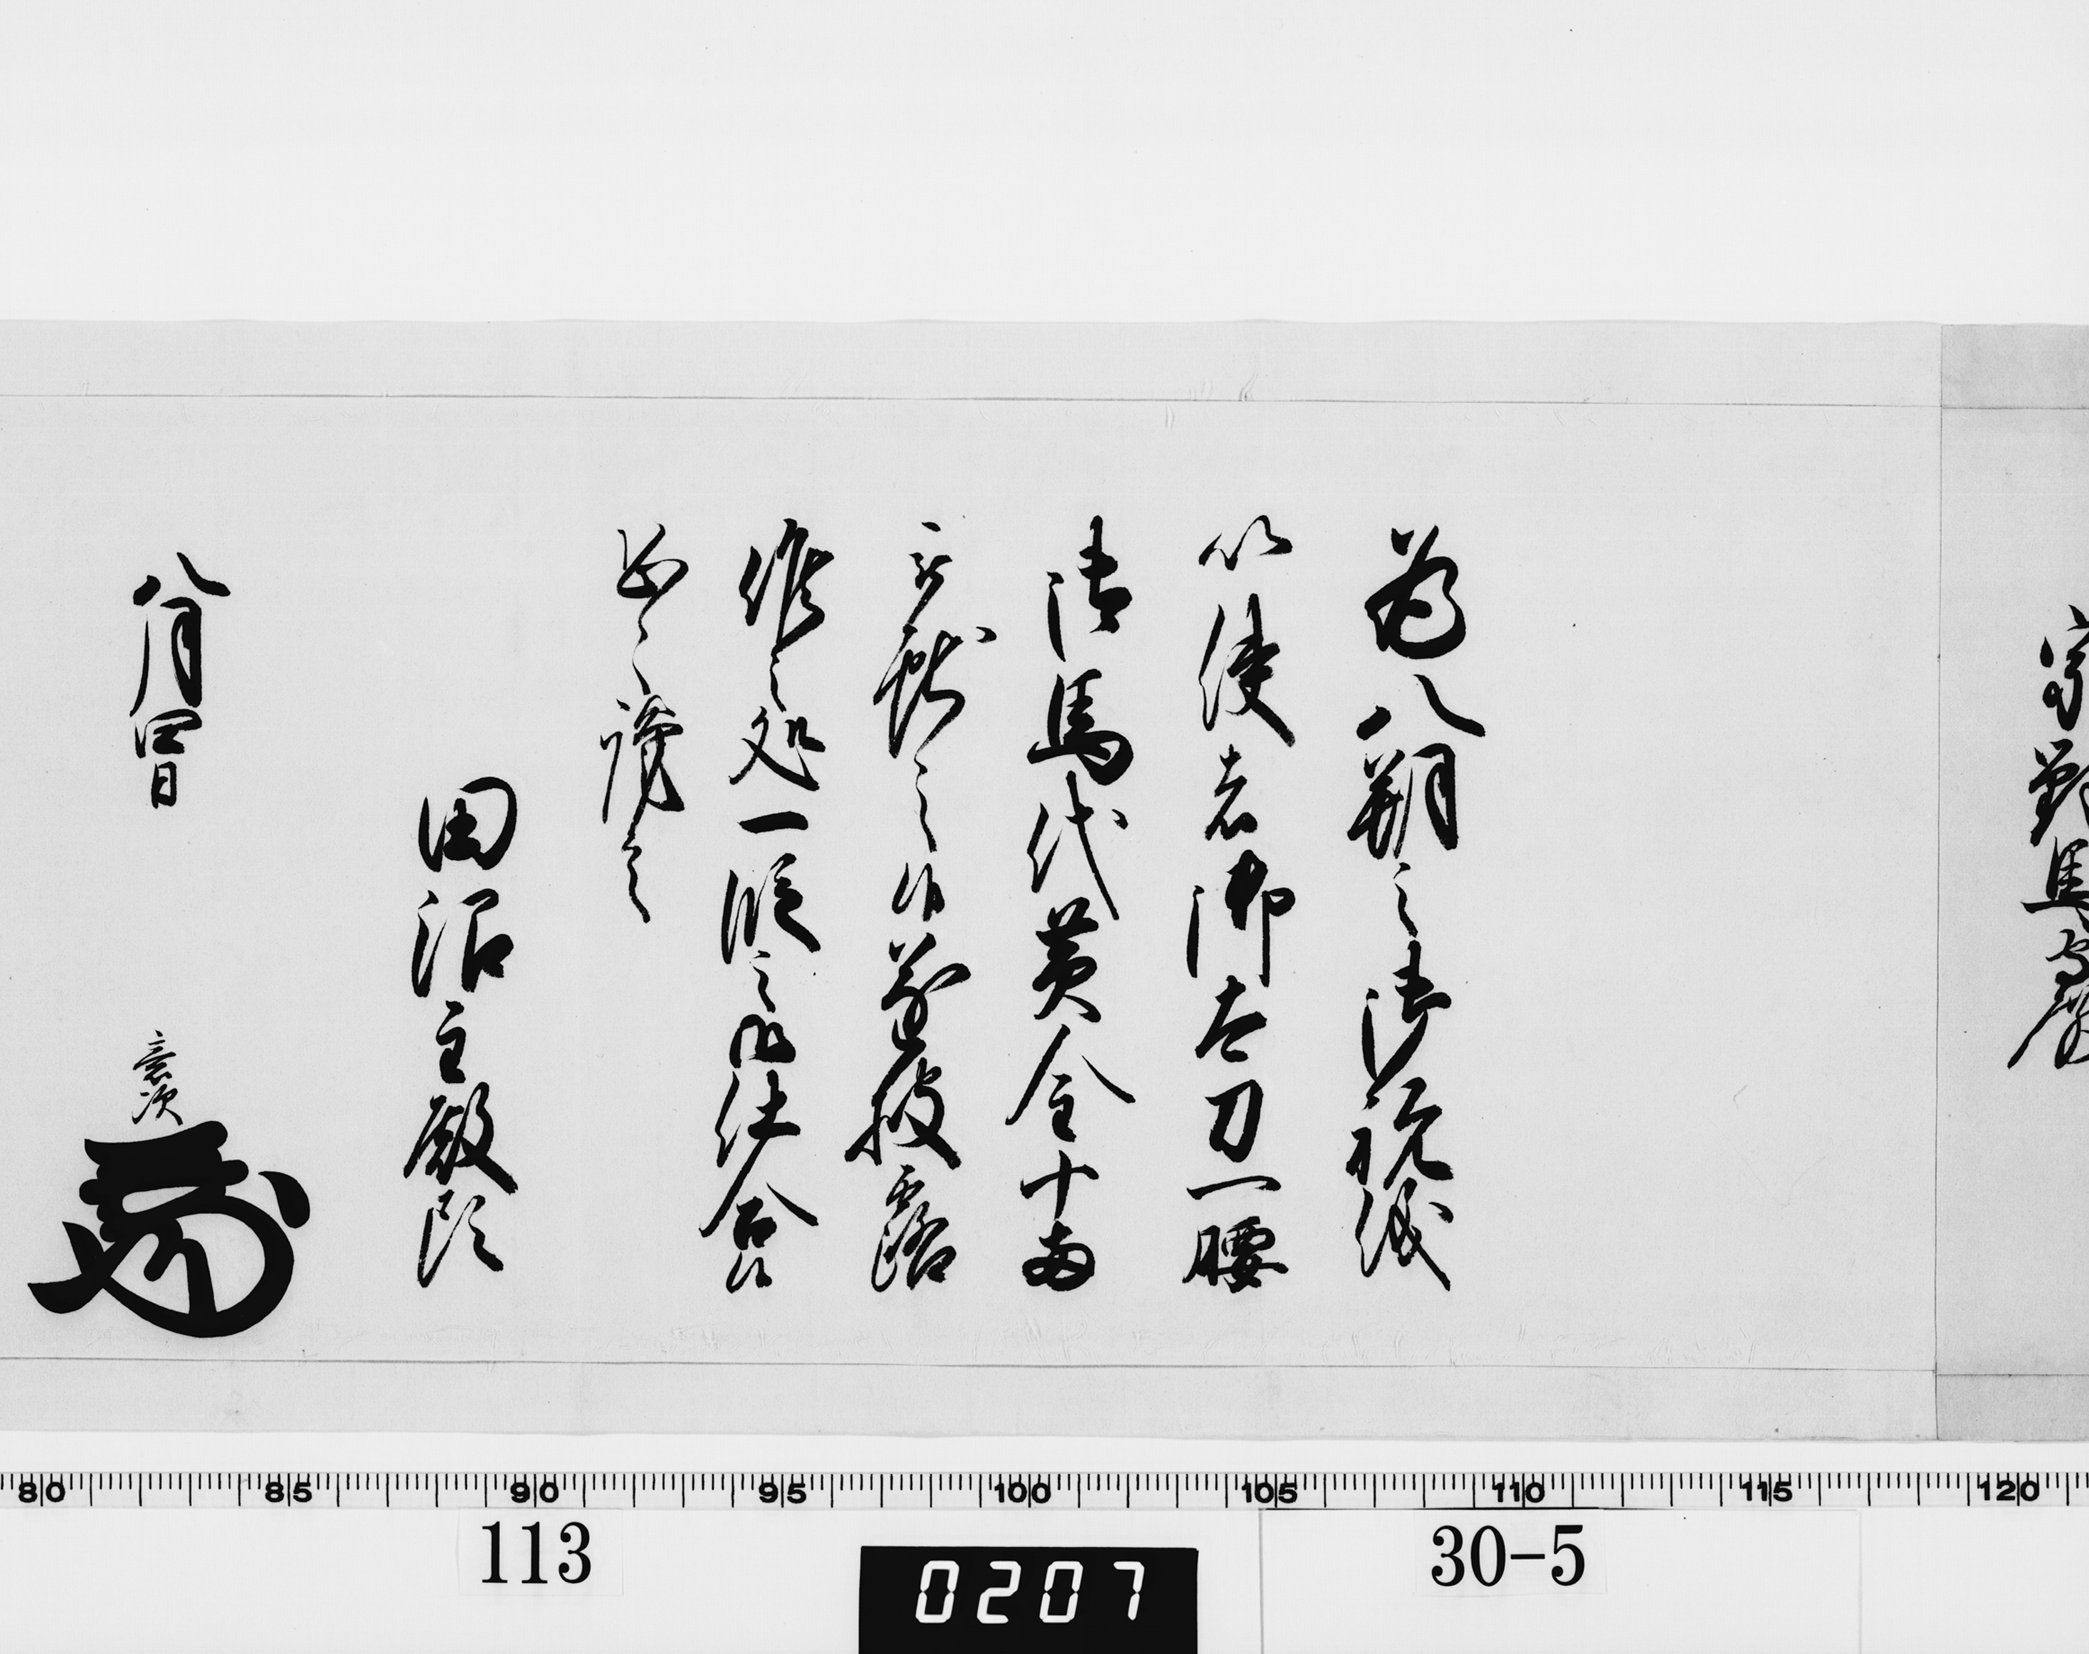 宗対馬守殿
為八朔之御祝儀
以使者御太刀一腰
御馬代黄金十両
被献之候遂披露
候之処一段之御仕合候
恐々謹言
田沼主殿頭
八月四日
意次
80 85 90 95 100 105 110 115 120
113
0207
30-5